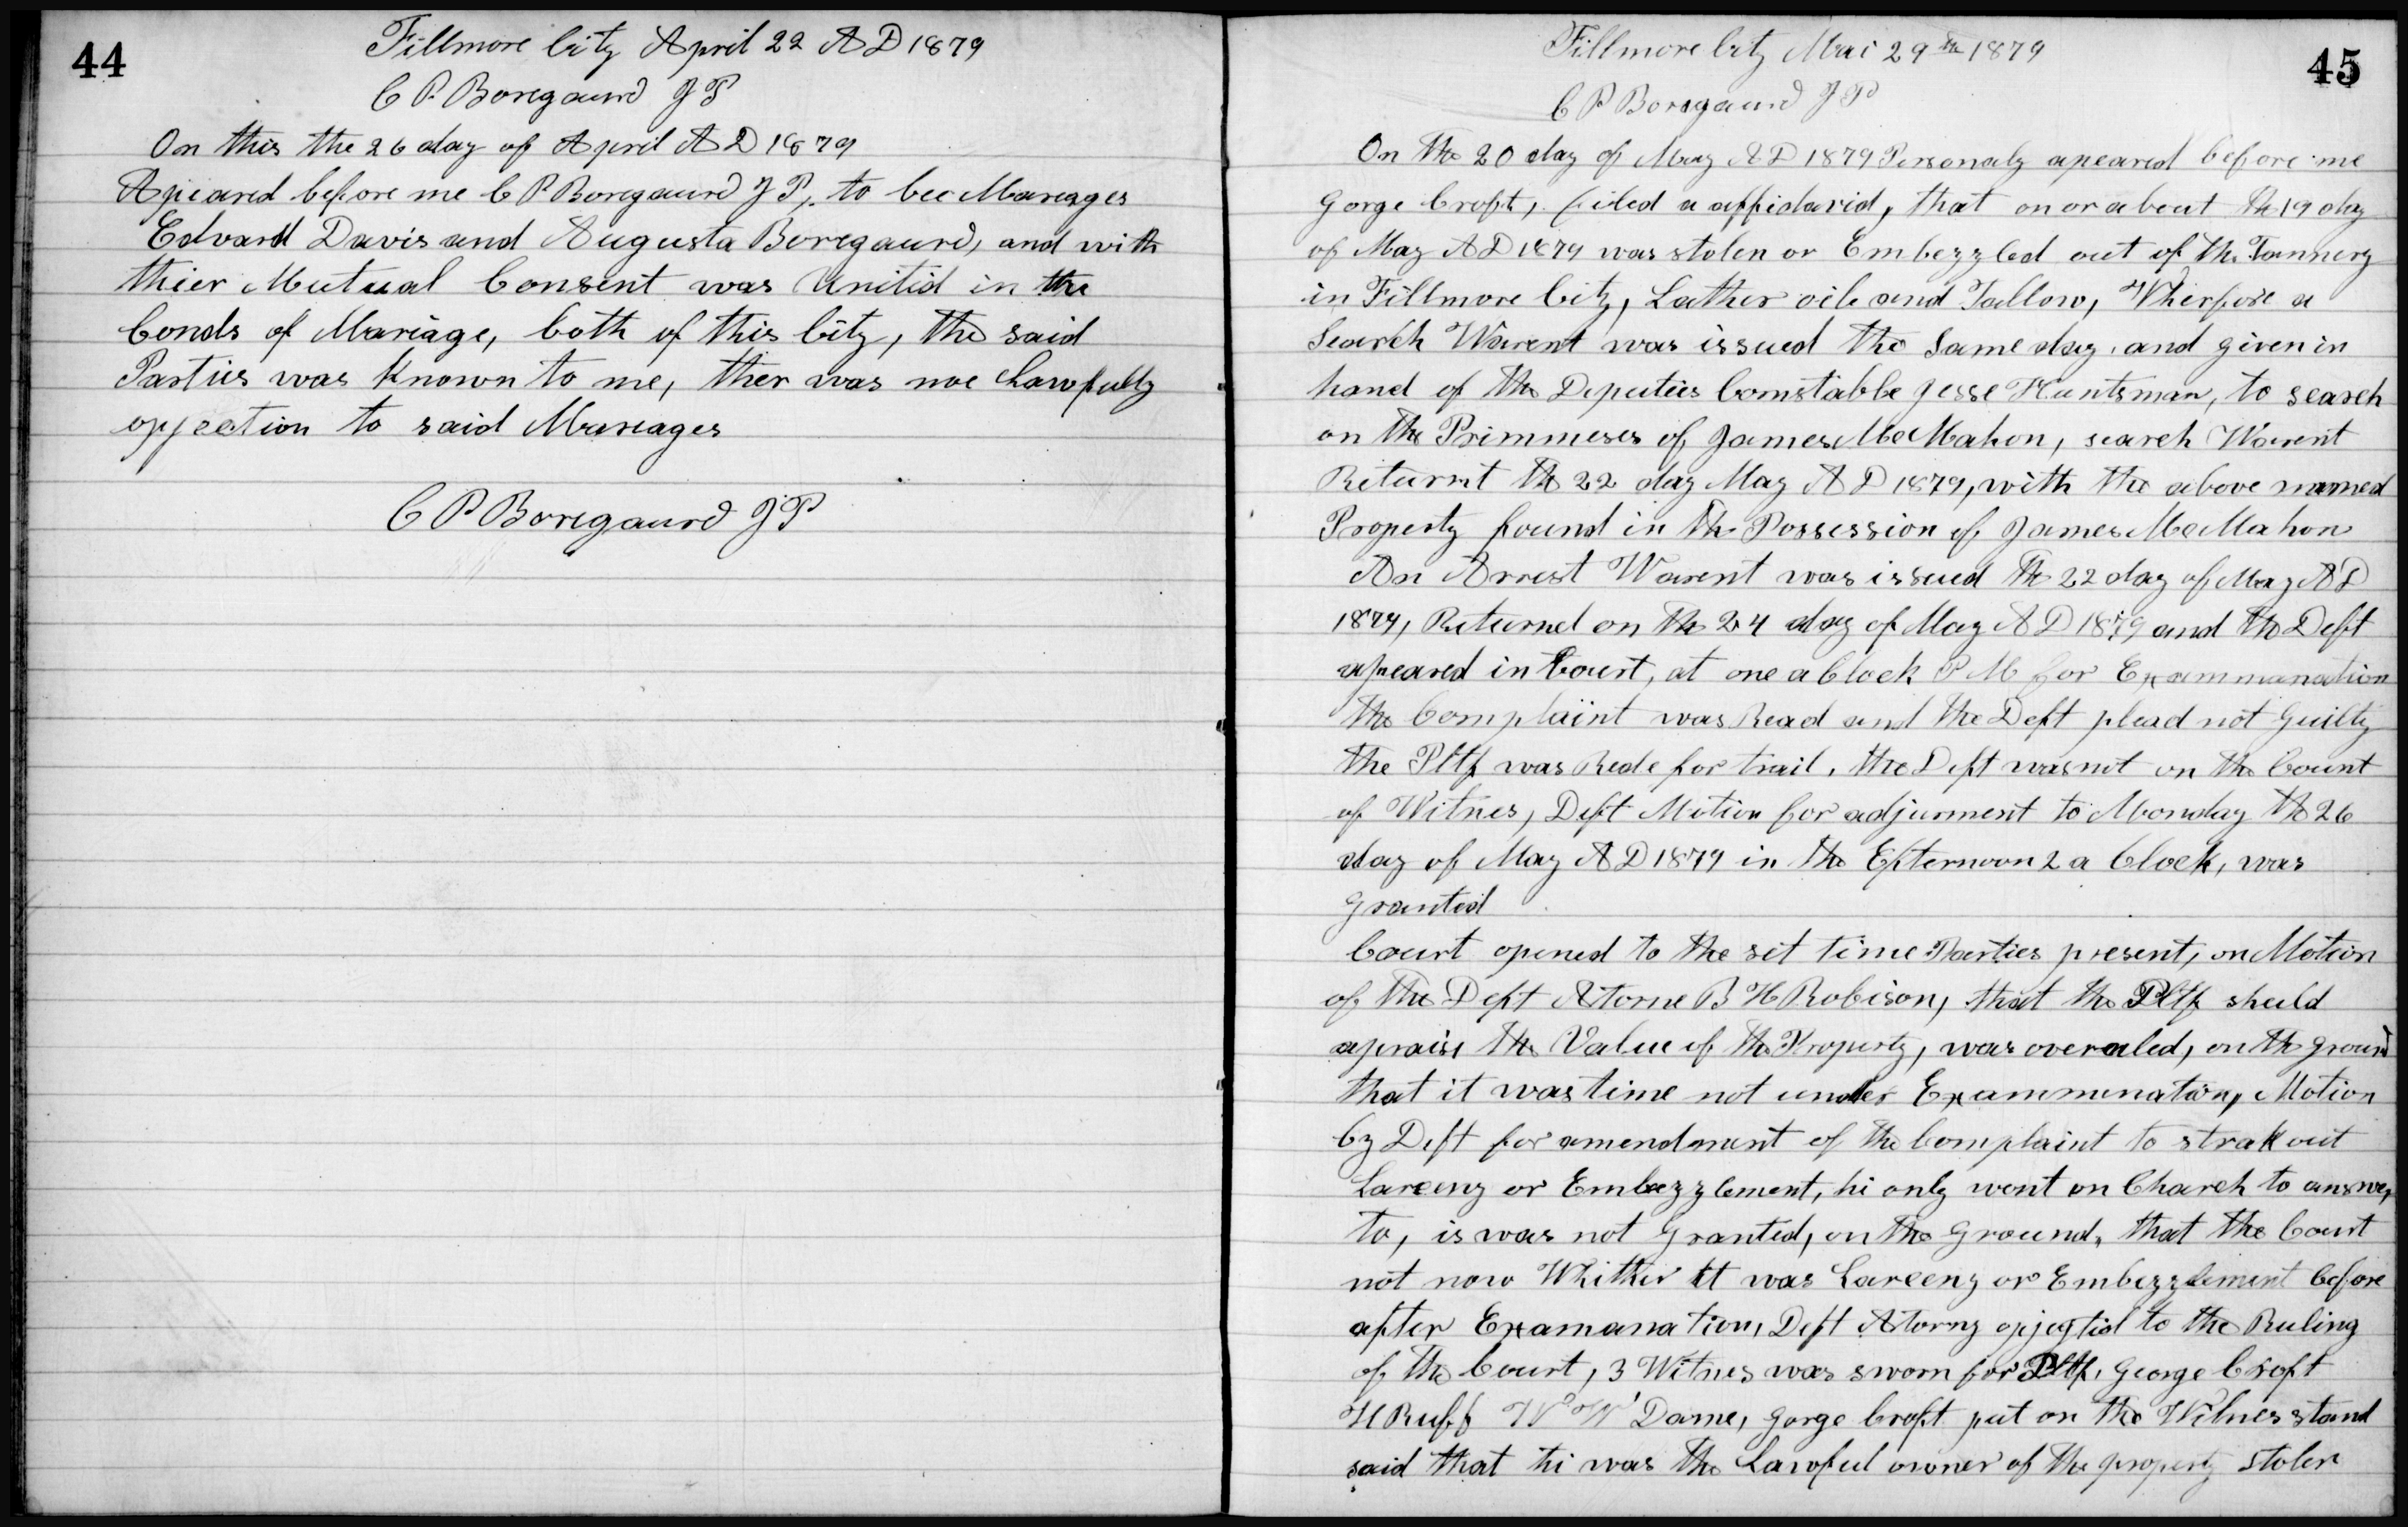 44
Fillmore City April 22 A D 1879
C P Boregaurd J P
On this the 26 day of April A D 1879
Apeared before me C P Boregaurd J P, to bee Mareages
Edvard Davis and Augusta Boregaurd, and with
thier Mutual Consent was Unitid in the
bonds of Mariage, both of this City, the said
Parties was Known to me, ther was noe Lawfully
opjection to said Mareages
C P Boregaurd J P
45
Fillmore City Mai 29th 1879
C P Boregaurd J P
On the 20 day of May A D 1879 Personaly apeared before me
Gorge Croft, filed a affidavid, that on or about the 19 day
of May A D 1879 was stolen or Embezzled out of the Tannery
in Fillmore City, Lather oile and Tallow, Wherfore a
Search Warent was issued the Same day, and given in
hand of the Deputies Comstable Jesse Huntsman, to search
on the Primmeses of James McMahon, search Warent
Returnt the 22 day May A D 1879, with the above named
Property found in the Possession of James McMahon
An Arrest Warent was issued the 22 day of May A D
1879, Returned on the 24 day of May A D 1879 and the Deft
apeared in Court, at one a Clock P M for Exammanation
the Complaint was Read and the Deft plead not Guilty
the Pltf was Rede for trail, the Deft was not on the Count
of Witnes, Deft Motion for adjurment to Monday the 26
day of May A D 1879 in the Efternoon 2 a Clock, was
Grantid
Court opened to the set time Parties present, on Motion
of the Deft Atorne B H Robison, that the Pltf shuld
apraise the Value of the Property, was overuled, on the ground
that it was time not under Exammination, Motion
by Deft for amendment of the Complaint to strak out
Lareeny or Embezzlement, hi only went on Charch to answer
to, is was not Granted, on the Ground, that the Court
not now Whither it was Lareeny or Embezzlement before
after Examanation, Deft Atorny opjegtid to the Ruling
of the Court, 3 Witnes was sworn for Pltf, George Croft
H Ruff W W Dame, Gorge Croft put on the Witnes stand
said that hi was the Lawful owner of the property Stolen